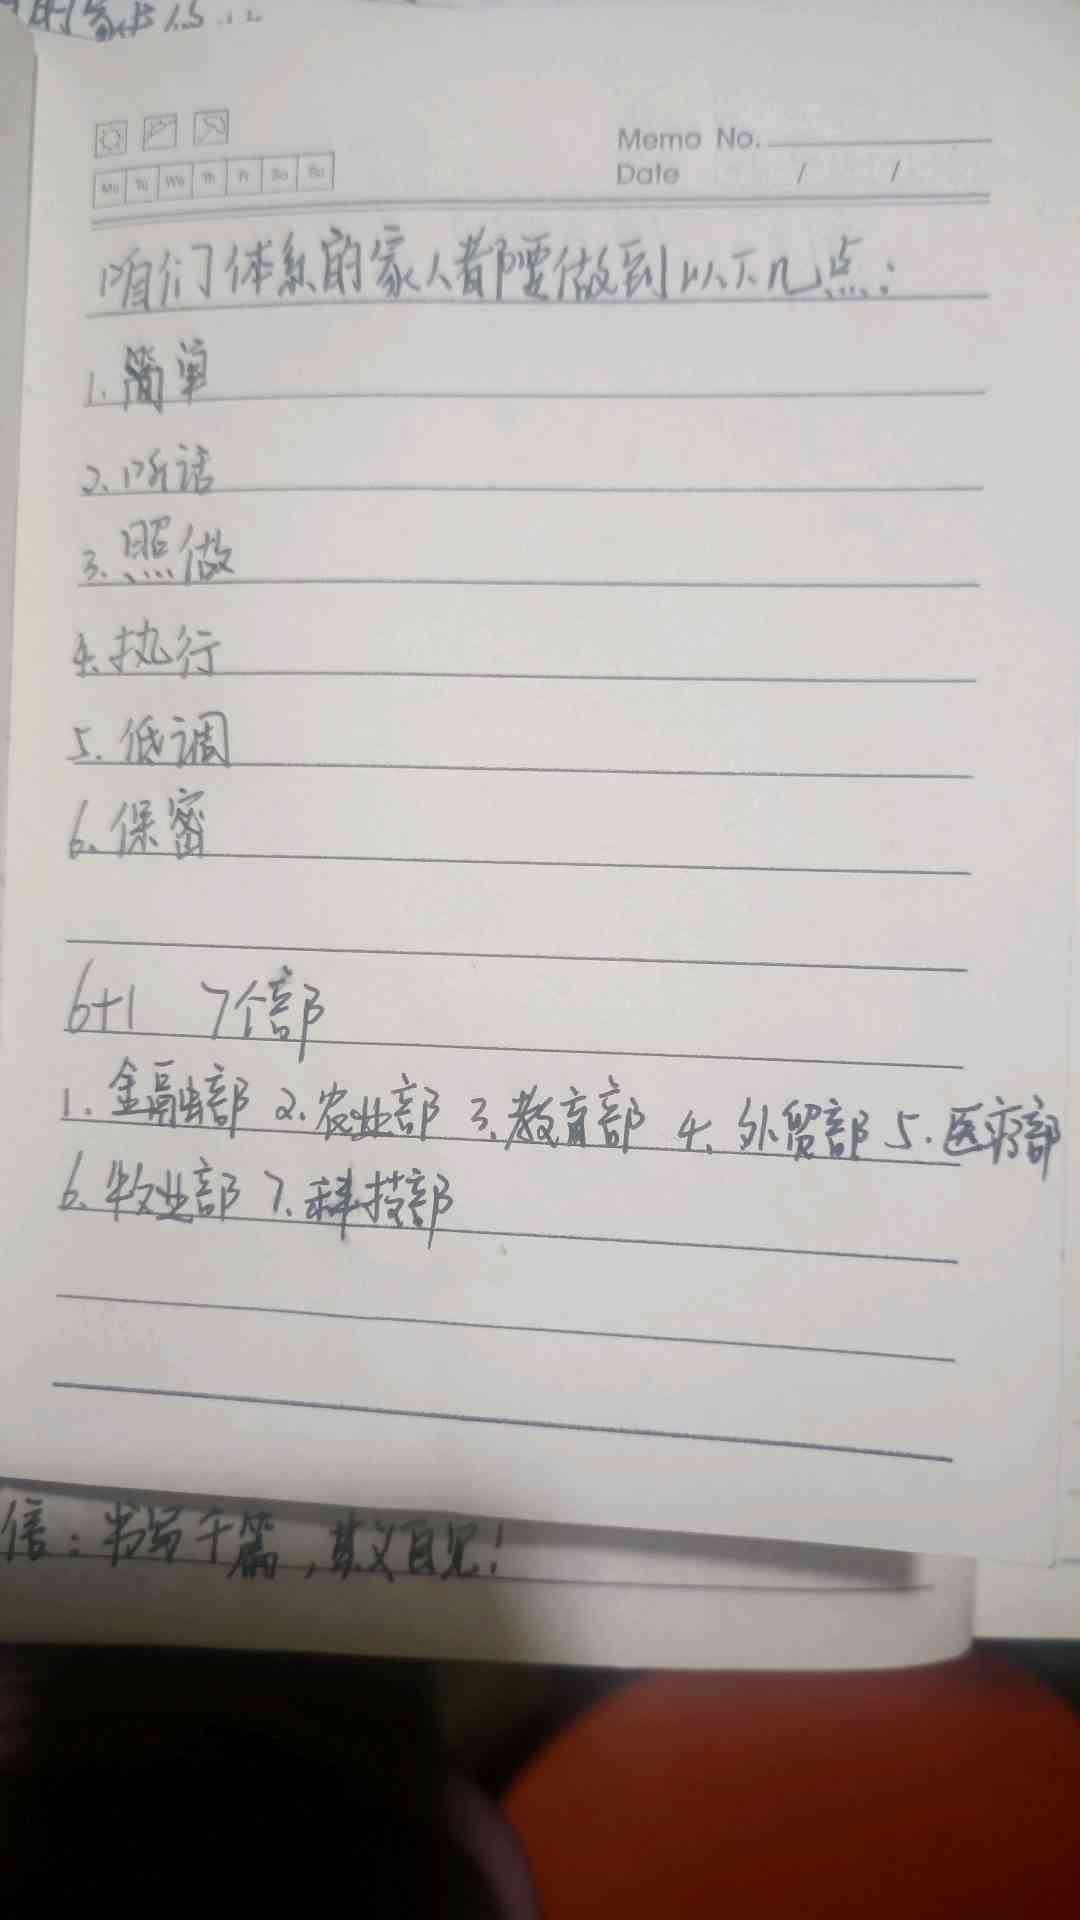 Memo No.
Date / /
Mo Tu We Th Fr Sa Su
咱们体系的家人都要做到以下几点:
1.简单
2.听话
3.照做
4.执行
5.低调
6.保密
6+1 7个部
1.金融部 2.农业部 3.教育部 4.外贸部 5.医疗部
6.牧业部 7.科技部
信:书写千篇,其义自见!